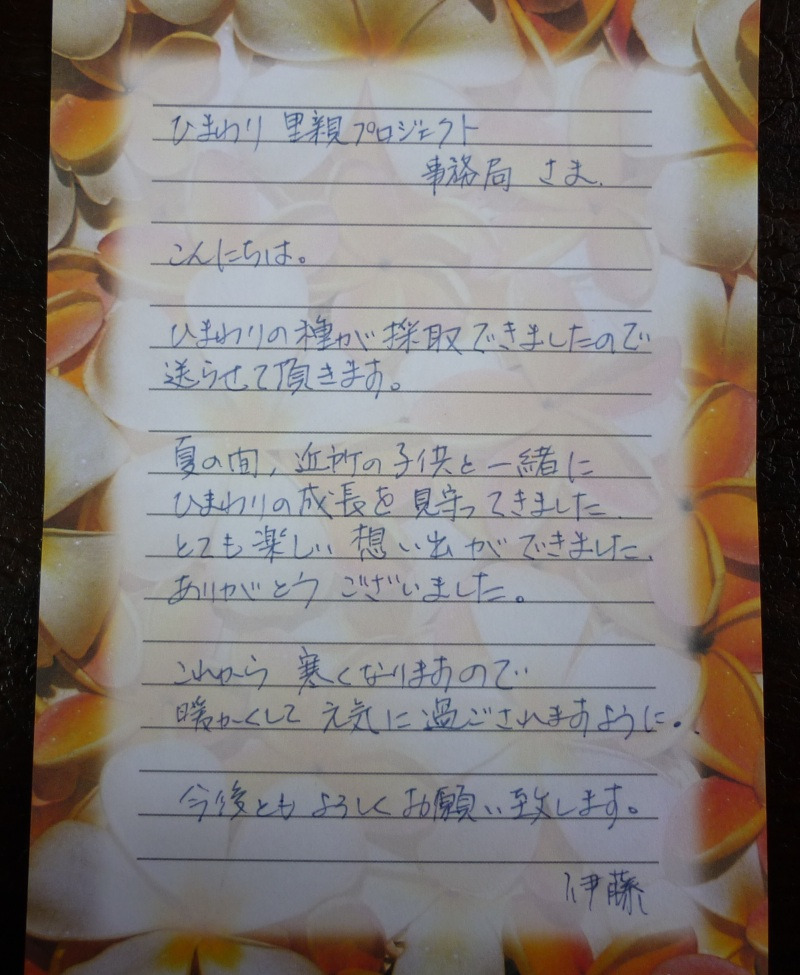 ひまわり 里親プロジェクト
事務局 さま.
こんにちは。
ひまわりの種が採取できましたので
送らせて頂きます。
夏の間, 近所の子供と一緒に
ひまわりの成長を見守ってきました.
とても楽しい想い出ができました.
ありがとうございました。
これから寒くなりますので
暖かくして元気に過ごされますように。
今後ともよろしくお願い致します。
伊藤